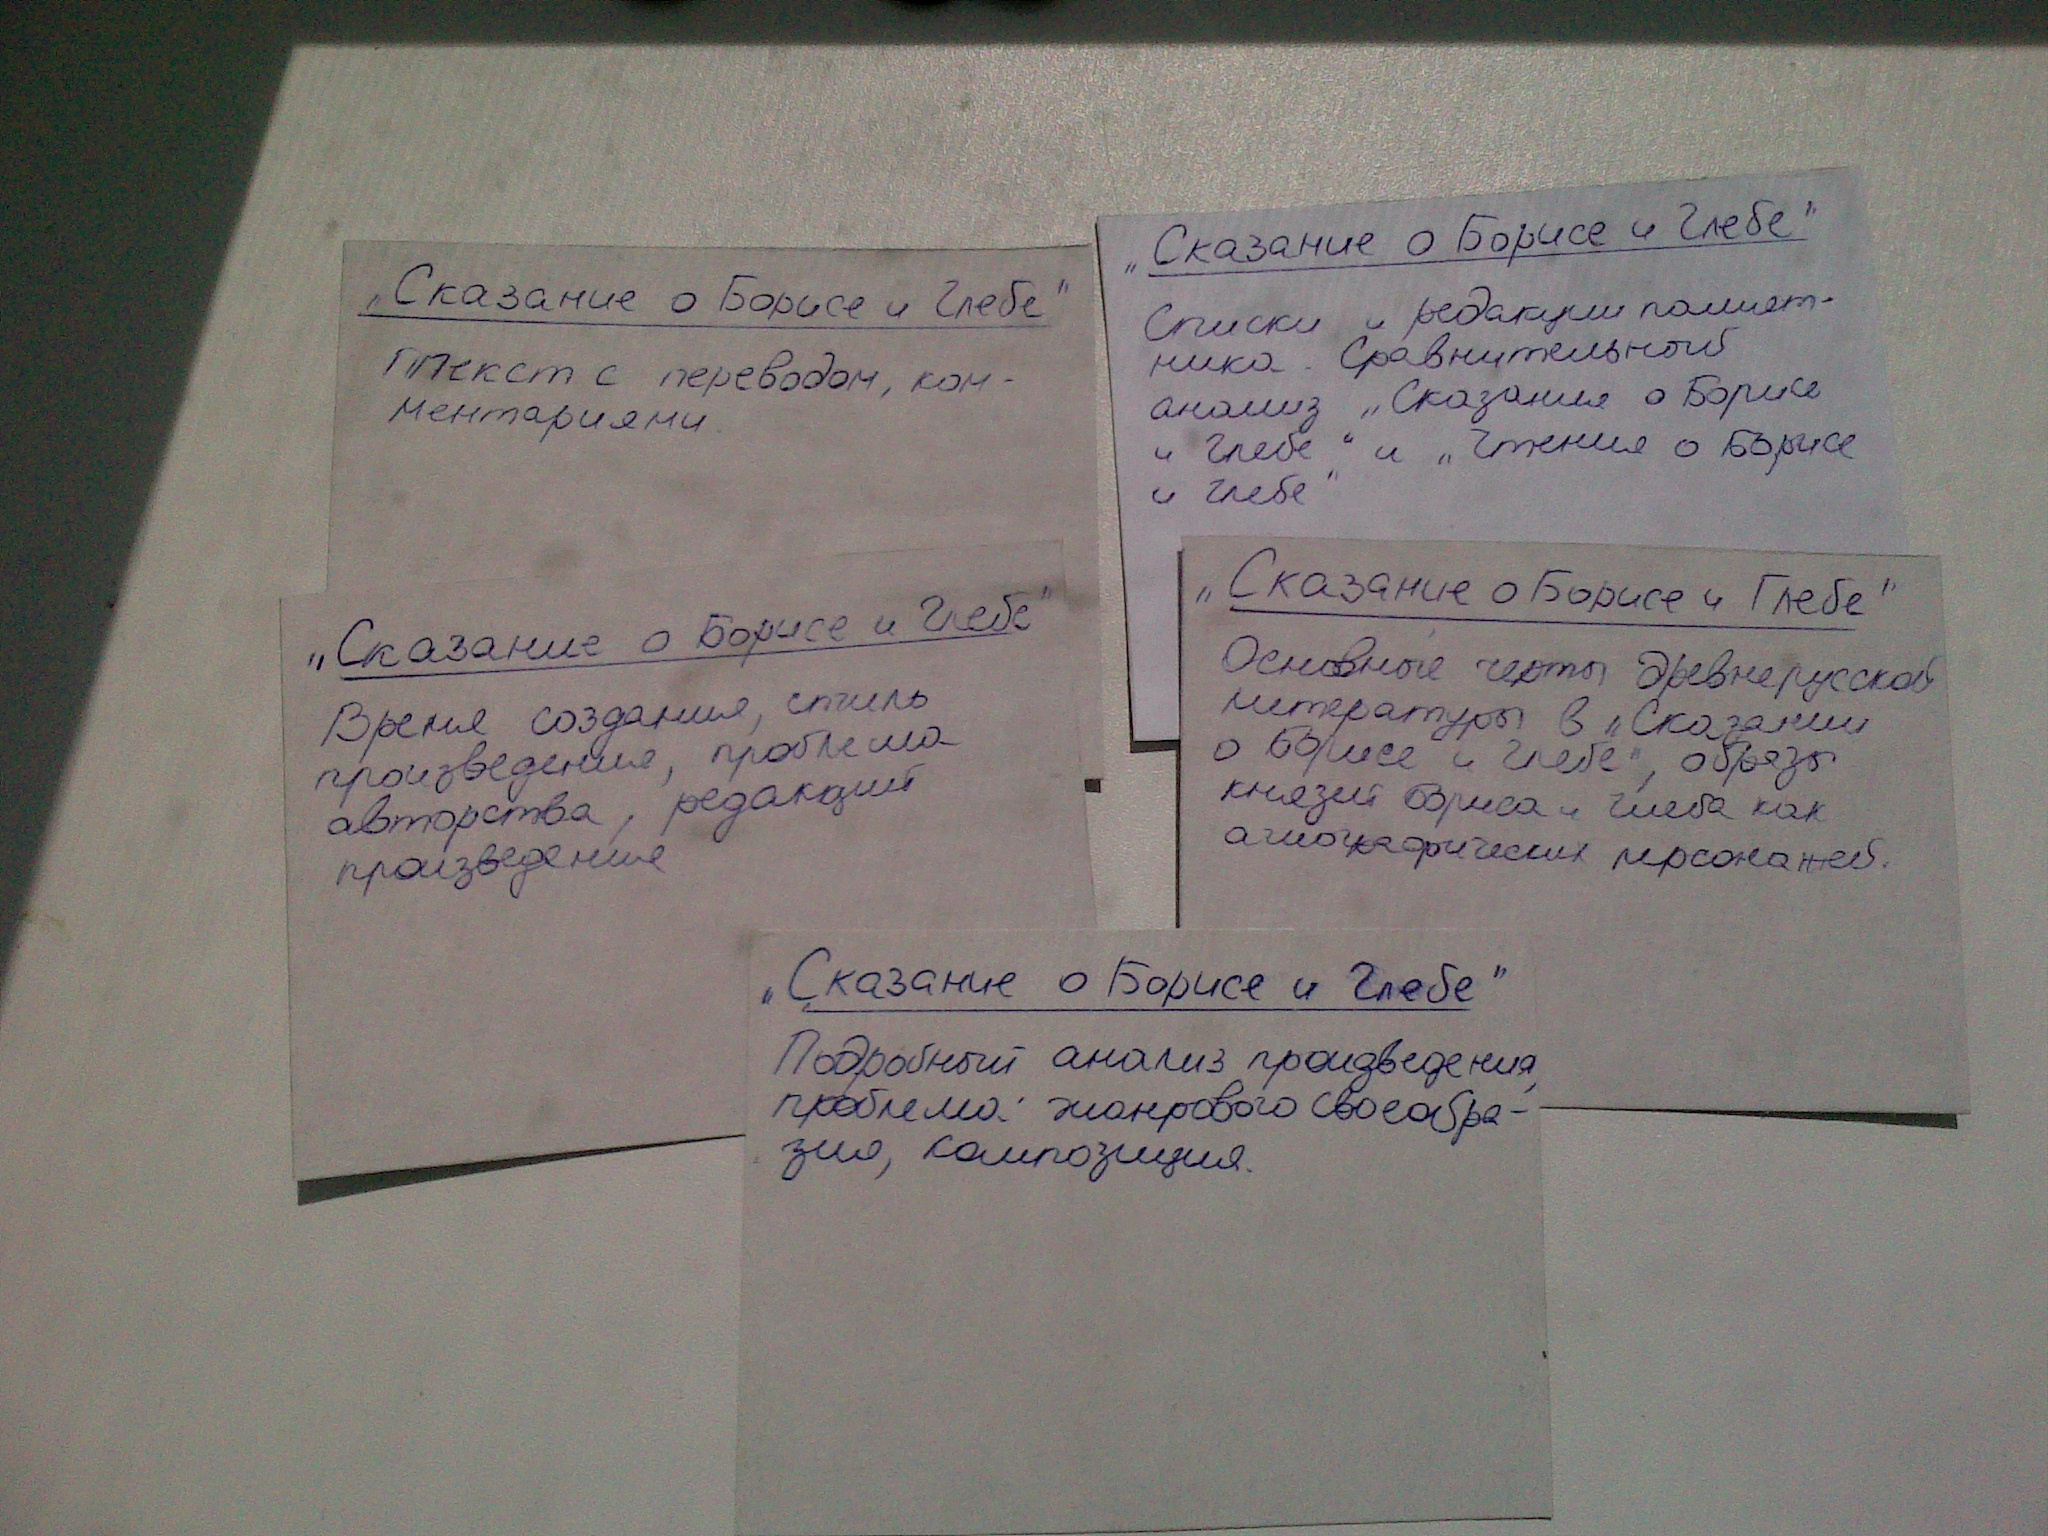 „Сказание о Борисе и Глебе"
Текст с переводом, ком-
ментариями.
„Сказание о Борисе и Глебе"
Списки и редакции памят-
ника. Сравнительный
анализ „Сказания о Борисе
и Глебе" и „Чтения о Борисе
и Глебе"
„Сказание о Борисе и Глебе"
Время создания, стиль
произведения, проблема
авторства, редакций
произведения
„Сказание о Борисе и Глебе"
Основные черты древнерусской
литературы в „Сказании
о Борисе и Глебе", образы
князей Бориса и Глеба как
агиографических персонажей.
„Сказание о Борисе и Глебе"
Подробный анализ произведения,
проблема жанрового своеобра-
зия, композиция.